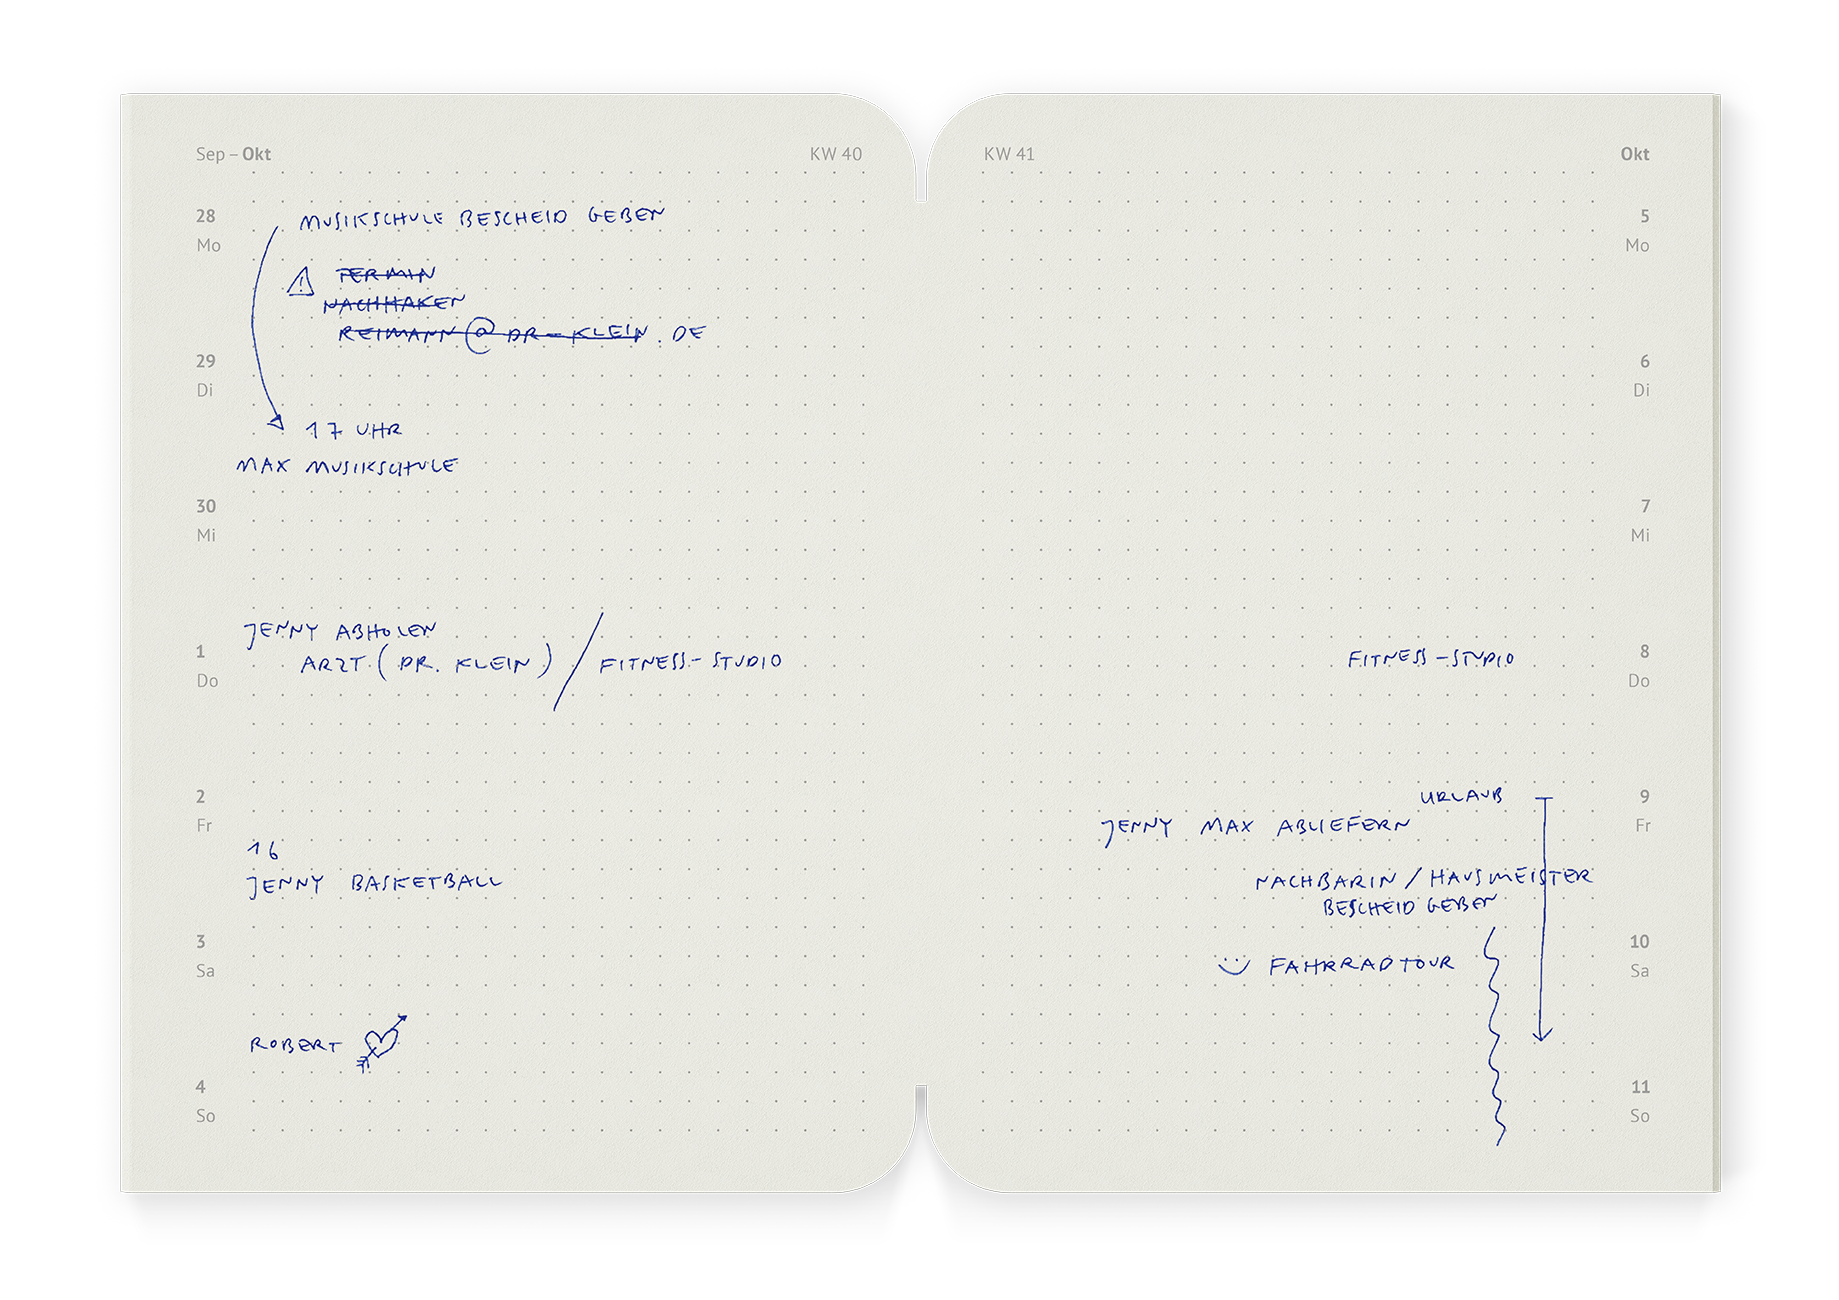 Sep – Okt KW 40
28 MUSIKSCHULE BESCHEID GEBEN
Mo
TERMIN
NACHHAKEN
REIMANN@DR-KLEIN.DE
29
Di
17 UHR
MAX MUSIKSCHULE
30
Mi
JENNY ABHOLEN
1 ARZT (DR. KLEIN) / FITNESS-STUDIO
Do
2
Fr
16
JENNY BASKETBALL
3
Sa
ROBERT
4
So
KW 41 Okt
5
Mo
6
Di
7
Mi
FITNESS-STUDIO 8
Do
URLAUB 9
JENNY MAX ABLIEFERN Fr
NACHBARIN / HAUSMEISTER
BESCHEID GEBEN
10
FAHRRADTOUR Sa
11
So